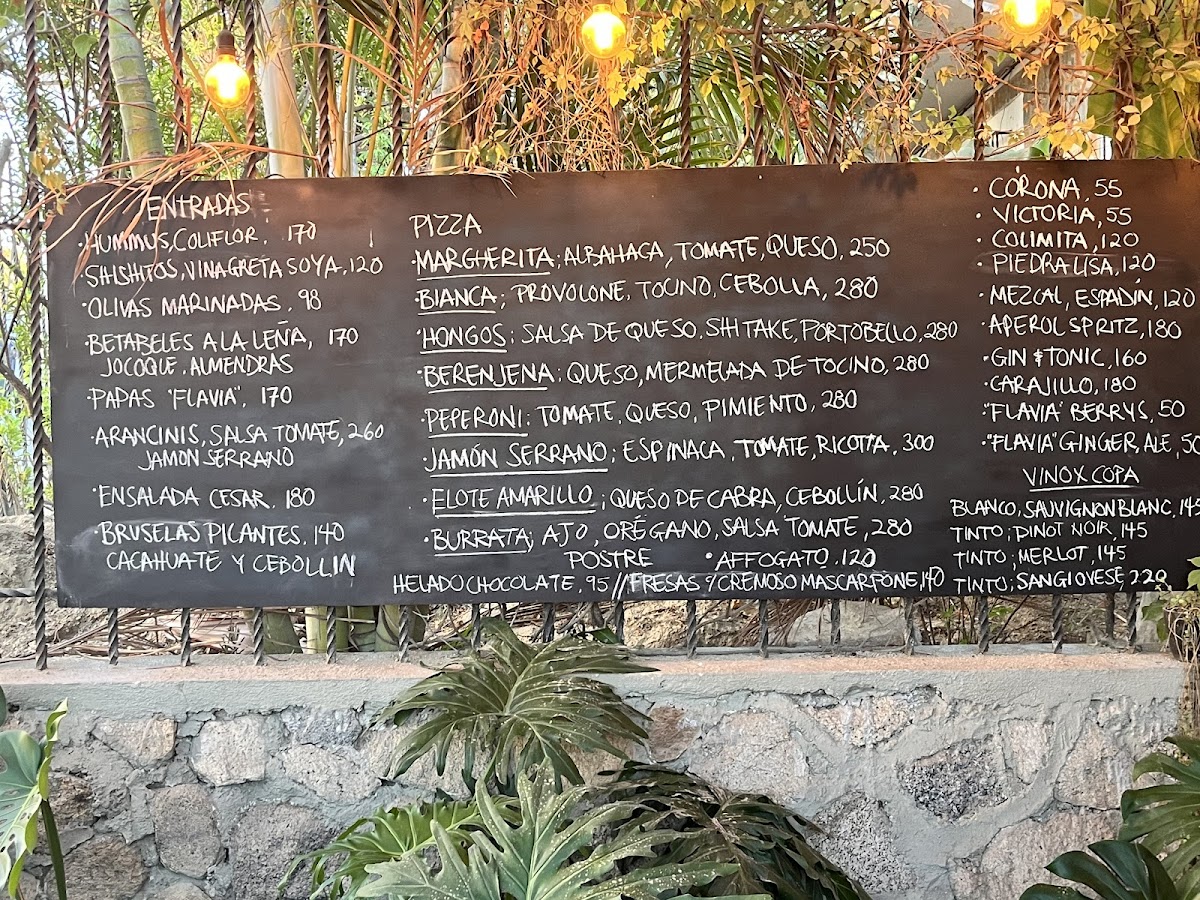 ENTRADAS
·HUMMUS, COLIFLOR. 170
SHISHITOS, VINAGRETA SOYA, 120
·OLIVAS MARINADAS. 98
·BETABELES A LA LEÑA, 170
JOCOQUE, ALMENDRAS
·PAPAS "FLAVIA". 170
·ARANCINIS, SALSA TOMATE, 260
JAMON SERRANO
·ENSALADA CESAR. 180
·BRUSELAS PICANTES. 140
CACAHUATE Y CEBOLLIN
PIZZA
·MARGHERITA; ALBAHACA, TOMATE, QUESO, 250
·BIANCA; PROVOLONE, TOCINO, CEBOLLA, 280
·HONGOS; SALSA DE QUESO, SHITAKE, PORTOBELLO, 280
·BERENJENA; QUESO, MERMELADA DE TOCINO, 280
·PEPERONI; TOMATE, QUESO, PIMIENTO, 280
·JAMÓN SERRANO; ESPINACA, TOMATE, RICOTTA. 300
·ELOTE AMARILLO; QUESO DE CABRA, CEBOLLÍN, 280
·BURRATA; AJO, ORÉGANO, SALSA TOMATE, 280
POSTRE ·AFFOGATO. 120
HELADO CHOCOLATE, 95 // FRESAS Y CREMOSO MASCARPONE, 140
· CORONA, 55
· VICTORIA, 55
· COLIMITA, 120
· PIEDRA LISA, 120
· MEZCAL, ESPADÍN, 120
·APEROL SPRITZ, 180
·GIN & TONIC, 160
·CARAJILLO, 180
·"FLAVIA" BERRYS, 50
·"FLAVIA" GINGER ALE, 50
VINO X COPA
BLANCO, SAUVIGNON BLANC, 145
TINTO; PINOT NOIR, 145
TINTO; MERLOT, 145
TINTO; SANGIOVESE 220